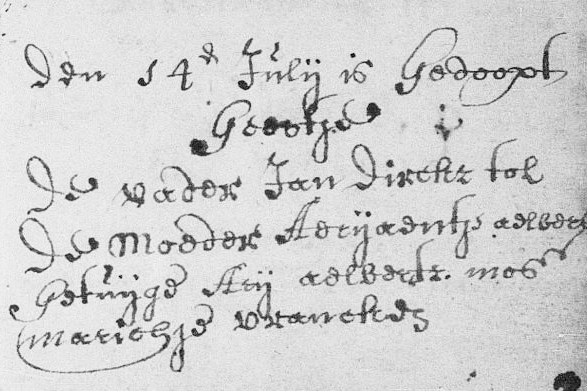 den 14d Julij is Gedoopt
Geertje
De vader Jan Dirckx tol
De Moeder Aerijaentje aelbers
Getuijge Arij aelbertx. mos
marichje vranckes